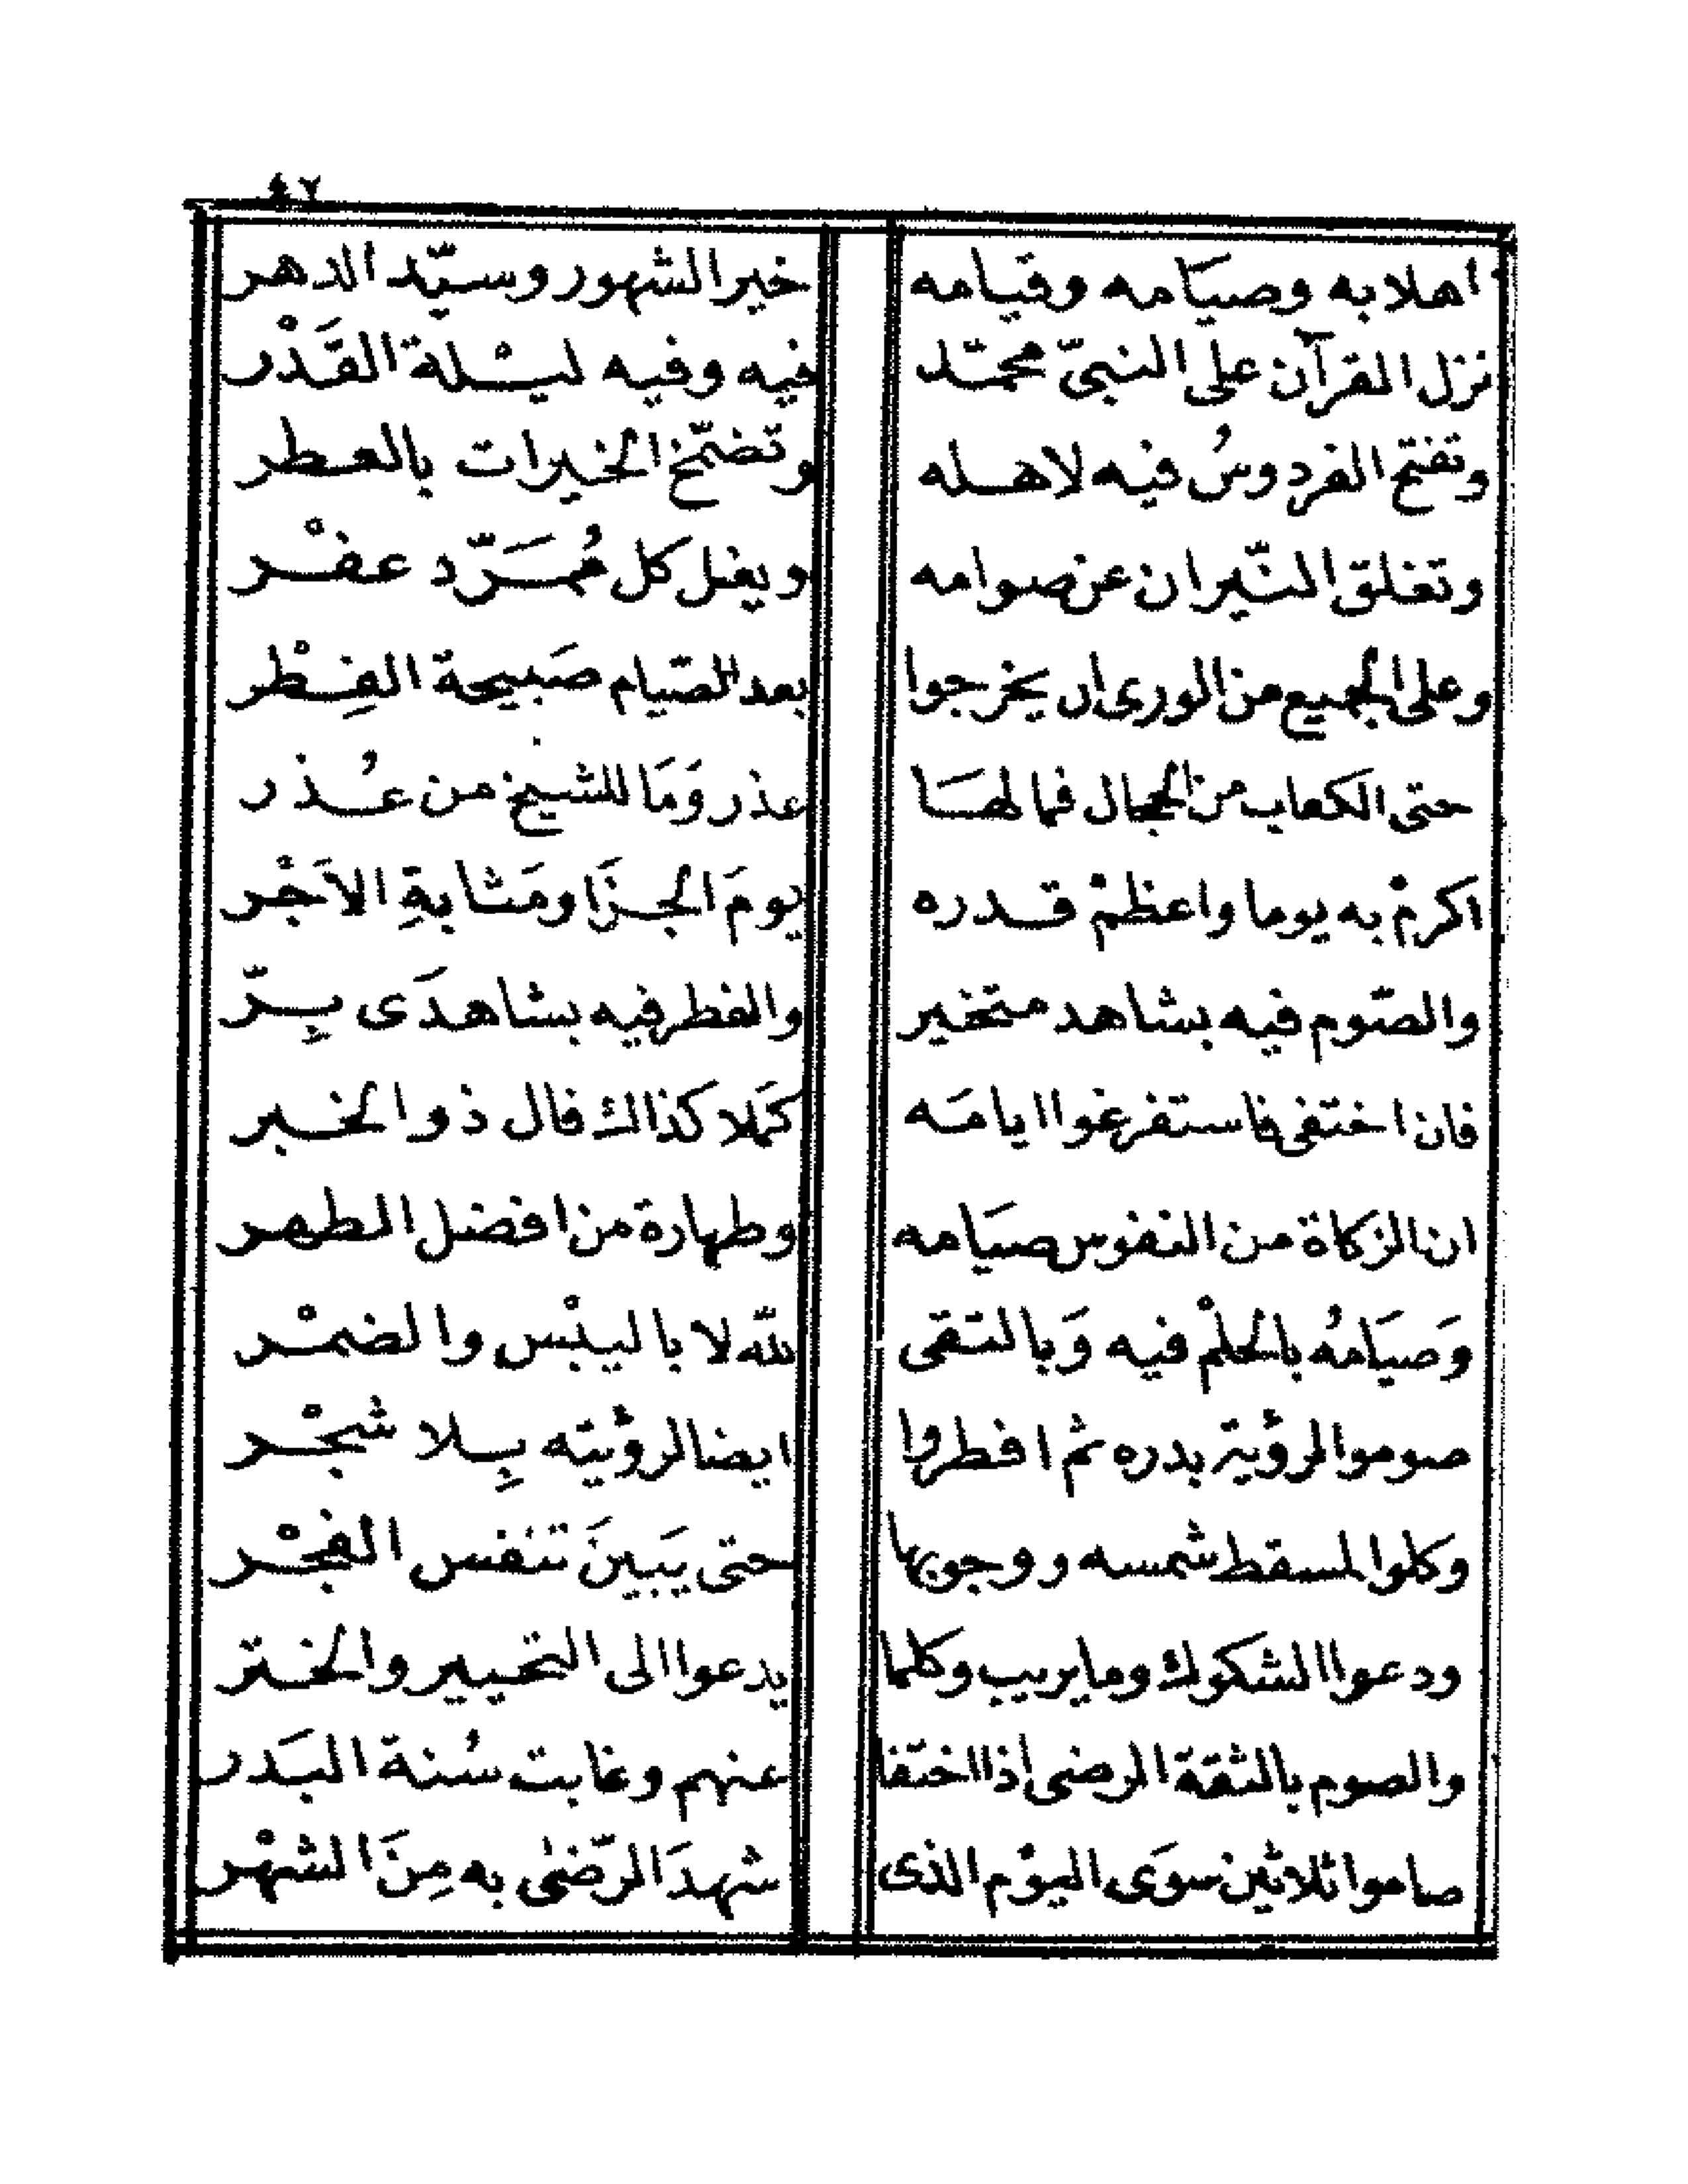 ٤٧
اهلا به وصيَامه وقيَامه خير الشهور وسيّد الدهر
نزل القرآن على النبىّ محمّد فيه وفيه ليْلة القَدْر
وتفتح الفردوسُ فيه لاهله وتضمّخ الخيرات بالعطر
وتغلق النّيران عن صوامه ويغل كل مُمَرّد عفْر
وعلى الجميع من الورى ان يخرجوا بعد الصّيام صَبيحة الفِطْر
حتى الكعاب من الحجال فما لهَا عذر وَمَا للشيخ من عُذر
اكرمْ به يوما واعظمْ قدره يومَ الجزَا ومَثابةِ الاَجْر
والصّوم فيه بشاهد متخير والفطر فيه بشاهدَى بِرّ
فان اختفى فاستفرغوا ايامَه كمَلا كذاك قال ذو الخبر
ان الزكاة من النفوس صيَامه وطهارة من افضل الطهر
وَصيَامُه بالحلْم فيه وَبالتقى لله لا باليبْس والضمْر
صوموا لرؤية بدره ثم افطروا ايضا لرؤيته بِلا شجْر
وكلوا لمسقط شمسه ووجوبها حتى يَبينَ تنفس الفجْر
ودعوا الشكوك وما يريب وكلما يدعوا الى التخيير والختر
والصوم بالثقة الرضى اذا اختفا عنهم وغابت سُنة البَدر
صاموا ثلاثين سوَى اليوْم الذى شهدَ الرّضىٰ به مِنَ الشهْر